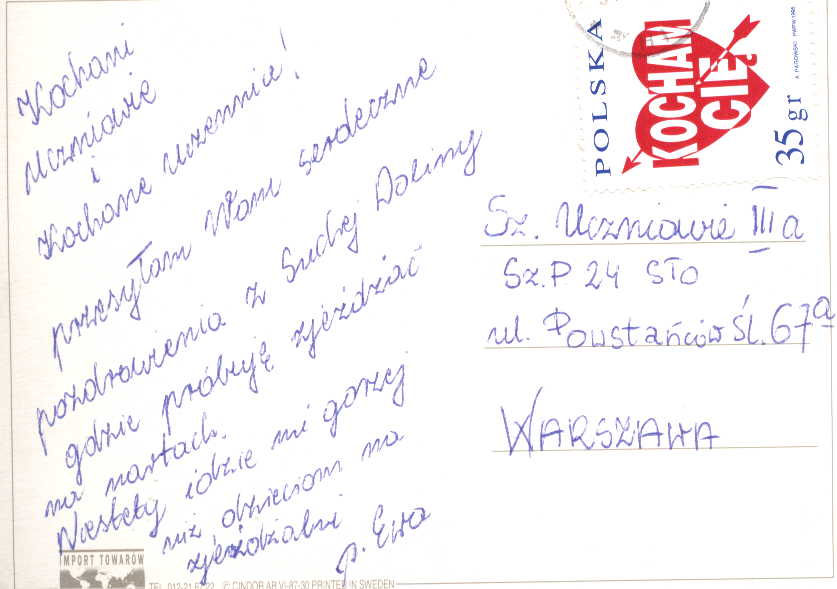 Kochani
Uczniowie
i
Kochane uczennice!
przesyłam Wam serdeczne
pozdrowienia z Suchej Doliny
gdzie próbuję zjeżdżać
na nartach.
Niestety idzie mi gorzej
niż dzieciom na
zjeżdżalni
p. Ewa
POLSKA
KOCHAM
CIĘ
35 gr
Sz. Uczniowie III a
Sz.P 24 STO
ul. Powstańców Śl. 67a
WARSZAWA
IMPORT TOWARÓW
PRINTED IN SWEDEN